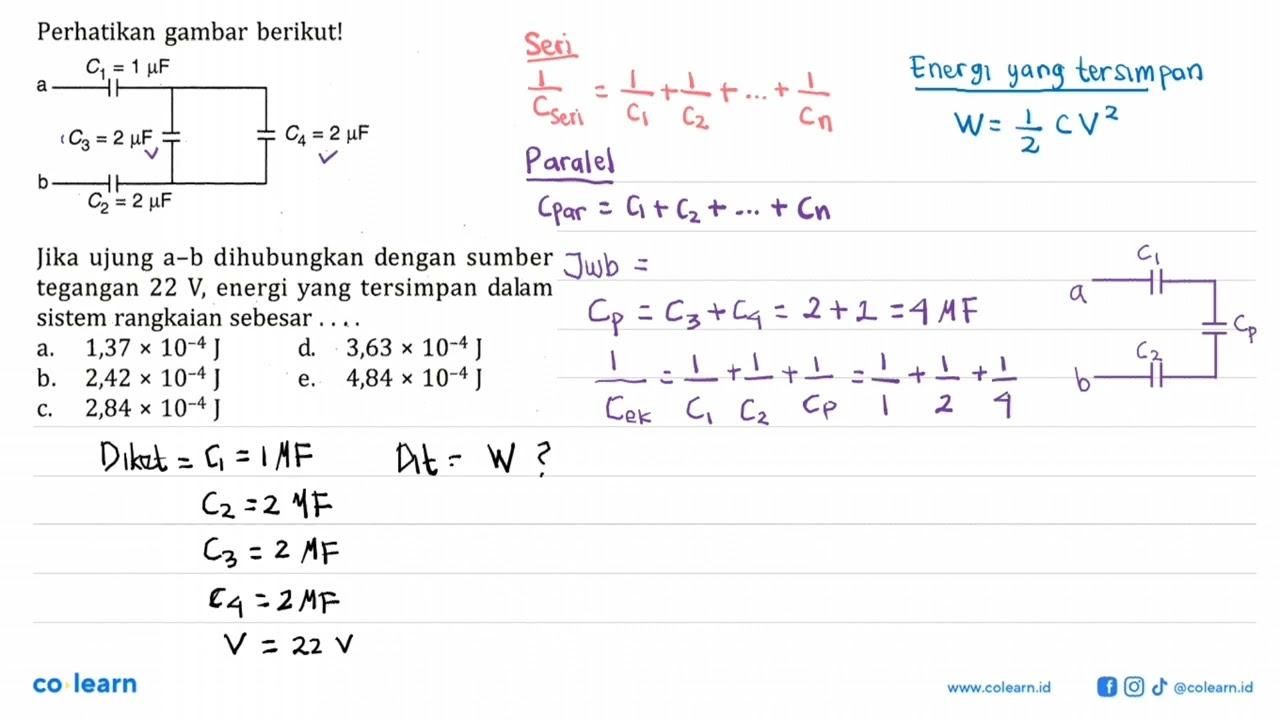 Perhatikan gambar berikut!
C₁ = 1 μF
a
C₃ = 2 μF
C₄ = 2 μF
b
C₂ = 2 μF
Jika ujung a–b dihubungkan dengan sumber
tegangan 22 V, energi yang tersimpan dalam
sistem rangkaian sebesar . . . .
a. 1,37 × 10⁻⁴ J
d. 3,63 × 10⁻⁴ J
b. 2,42 × 10⁻⁴ J
e. 4,84 × 10⁻⁴ J
c. 2,84 × 10⁻⁴ J
Seri
1/Cseri = 1/C₁ + 1/C₂ + ... + 1/Cn
Paralel
Cpar = C₁ + C₂ + ... + Cn
Energi yang tersimpan
W = 1/2 C V²
Jwb =
Cp = C₃ + C₄ = 2 + 2 = 4 MF
1/Cek = 1/C₁ + 1/C₂ + 1/Cp = 1/1 + 1/2 + 1/4
C₁
a
Cp
C₂
b
Diket = C₁ = 1 MF
Dit = W ?
C₂ = 2 MF
C₃ = 2 MF
C₄ = 2 MF
V = 22 V
co learn
www.colearn.id
@colearn.id